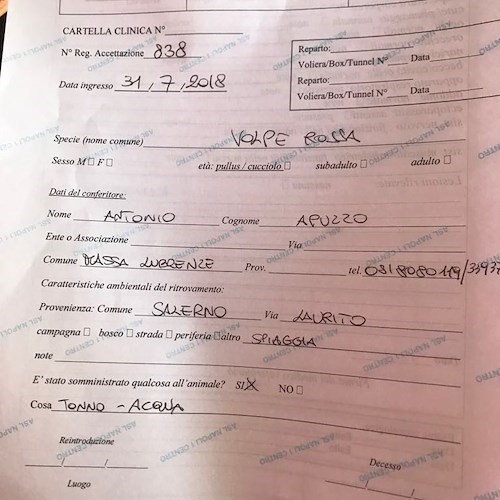 CARTELLA CLINICA N°
N° Reg. Accettazione 838
Data ingresso 31, 7, 2018
Reparto:
Voliera/Box/Tunnel N° Data
Reparto:
Voliera/Box/Tunnel N° Data
Specie (nome comune) VOLPE ROSSA
Sesso M □ F □ età: pullus / cucciolo □ subadulto □ adulto □
Dati del conferitore:
Nome ANTONIO Cognome APUZZO
Ente o Associazione Via
Comune MASSA LUBRENZE Prov. tel. 0818080119/33937
Caratteristiche ambientali del ritrovamento:
Provenienza: Comune SALERNO Via LAURITO
campagna □ bosco □ strada □ periferia □ altro SPIAGGIA
note
E' stato somministrato qualcosa all'animale? SI☒ NO □
Cosa TONNO - ACQUA
Reintroduzione
Decesso
/ /
/ /
Luogo
ASL NAPOLI 1 CENTRO